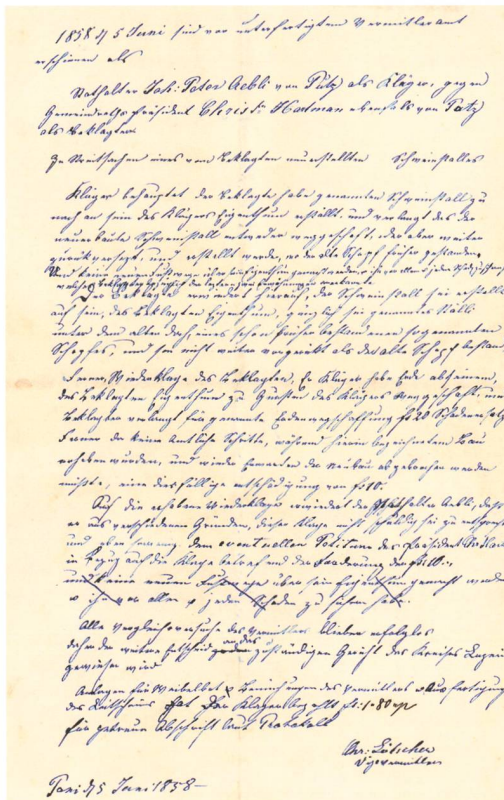 1858 d 5 Juni sind vor unterfertigtem Vermitleramt
erschienen als
Stathalter Joh: Peter Aebli von Putz als Kläger, gegen
Gemeindrathspräsident Christ: Hartman ebenfals von Putz
als Beklagter
In Streitsachen eines vom Beklagten neuerstellten Schweinstalles
Kläger behauptet der Beklagte habe genannten Schweinstall zu
nach an sein des Klägers Eigenthum erstellt, und verlangt das der
neuerbaute Schweinstall entweder weggeschaft, oder aber weiter
zurükversezt, und erstellt werde, wo der alte Schopf früher gestanden,
Und keine neuen über sein Eigenthum gemacht werden,
Der Beklagte erwiedert hierauf, der Schweinstall sei erstellt
auf sein, des Beklagten Eigenthum,
unter dem alten dach, eines schon früher bestandenen sogenannten
Schopfes, und sei nicht weiter vorgerükt als der alte Schopf bestan
Ferner, Wiederklage des Beklagten, Kläger habe Erde ab
des Beklagten Eigenthum zu Gunsten des Klägers weggeschaft, und
Beklagter verlangt für genannte Erdenwegschaffung fr 20 Schadenersatz
Ferner da keine Amtliche Schritte, während hierin bezeichnetem Bau
erhoben wurden, und wieder Erwarten der Neubau abgebrochen werden
müste, eine diesfällige entschädigung von fr 10.
Auf die erhobene Wiederklage erwiedert der Stathalter Aebli, dass
er aus verschiedenen Gründen, dieser Klage nicht schuldig sei zu entsprechen
und eben so wenig dem eventuellen Petitum des Präsident
in Bezug auf die Klage betreffend der Forderung der fr 10.,
und keine neuen Fuhrwege über sein Eigenthum gemacht werde
vor allem jedem Schaden zu sichern hat.
Alle Vergleichsversuche des Vermitlers blieben erfolglos
daher der weitere Entscheid an das zuständigen Gericht des Kreises Luzein
gewiesen wird
Anlagen für Weibelbot & Bemühungen des Vermitlers & Ausfertigung
des Leitscheins hat Der Kläger bezahlt fr: 1.80 rp
für getreue Abschrift laut Protokoll
Chr: Lötscher
Vizevermitler
d 5 Juni 1858 —